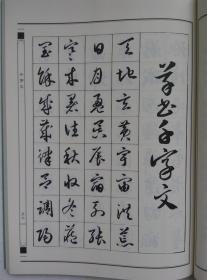 草书千字文
天地玄黄宇宙洪荒
日月盈昃辰宿列张
寒来暑往秋收冬藏
闰馀成岁律吕调阳